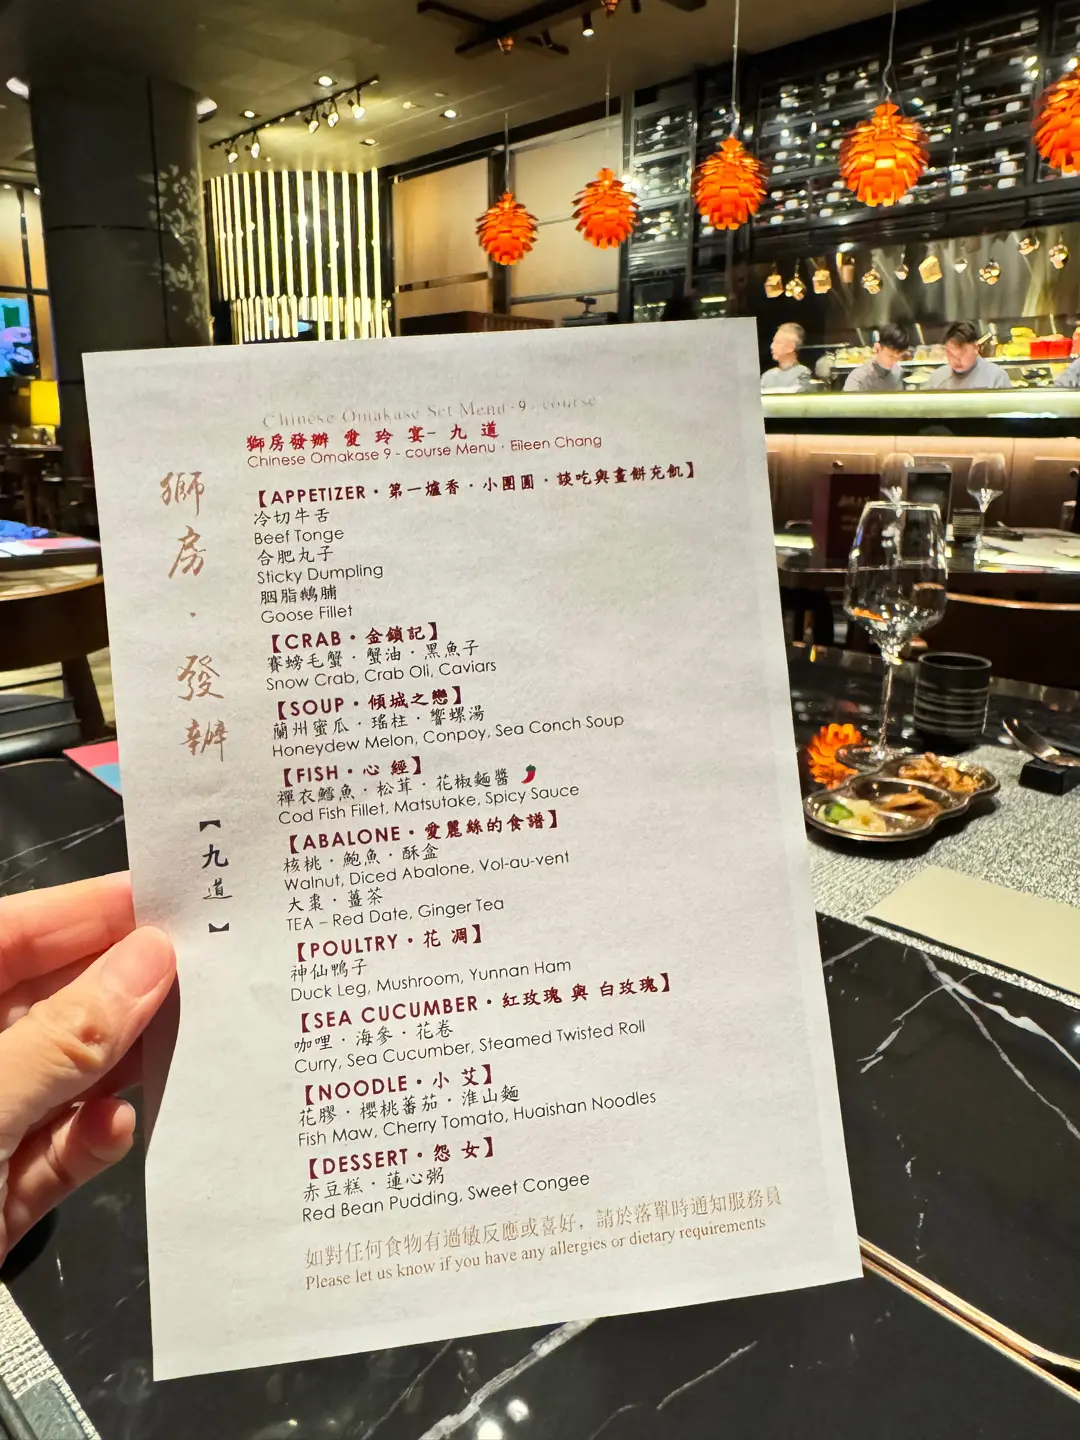 Chinese Omakase Set Menu - 9 - course
獅房發辦 愛 玲 宴- 九 道
Chinese Omakase 9 - course Menu · Eileen Chang
獅房·發辦
【九道】
【APPETIZER · 第一爐香 · 小團圓 · 談吃與畫餅充飢】
冷切牛舌
Beef Tonge
合肥丸子
Sticky Dumpling
胭脂鵝脯
Goose Fillet
【CRAB · 金鎖記】
賽螃毛蟹 · 蟹油 · 黑魚子
Snow Crab, Crab Oli, Caviars
【SOUP · 傾城之戀】
蘭州蜜瓜 · 瑤柱 · 響螺湯
Honeydew Melon, Conpoy, Sea Conch Soup
【FISH · 心 經】
禪衣鱈魚 · 松茸 · 花椒麵醬
Cod Fish Fillet, Matsutake, Spicy Sauce
【ABALONE · 愛麗絲的食譜】
核桃 · 鮑魚 · 酥盒
Walnut, Diced Abalone, Vol-au-vent
大棗 · 薑茶
TEA – Red Date, Ginger Tea
【POULTRY · 花 凋】
神仙鴨子
Duck Leg, Mushroom, Yunnan Ham
【SEA CUCUMBER · 紅玫瑰 與 白玫瑰】
咖哩 · 海參 · 花卷
Curry, Sea Cucumber, Steamed Twisted Roll
【NOODLE · 小 艾】
花膠 · 櫻桃蕃茄 · 淮山麵
Fish Maw, Cherry Tomato, Huaishan Noodles
【DESSERT · 怨 女】
赤豆糕 · 蓮心粥
Red Bean Pudding, Sweet Congee
如對任何食物有過敏反應或喜好，請於落單時通知服務員
Please let us know if you have any allergies or dietary requirements